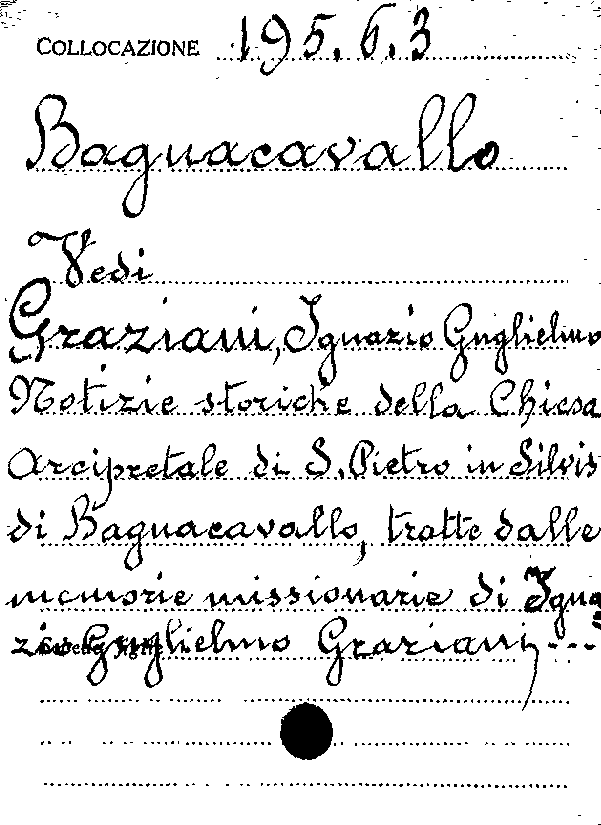 COLLOCAZIONE 195.6.3
Bagnacavallo
Vedi
Graziani, Ignazio Guglielmo
Notizie storiche della Chiesa
Arcipretale di S. Pietro in Silvis
di Bagnacavallo, tratte dalle
memorie missionarie di Igna=
zio Guglielmo Graziani, ---